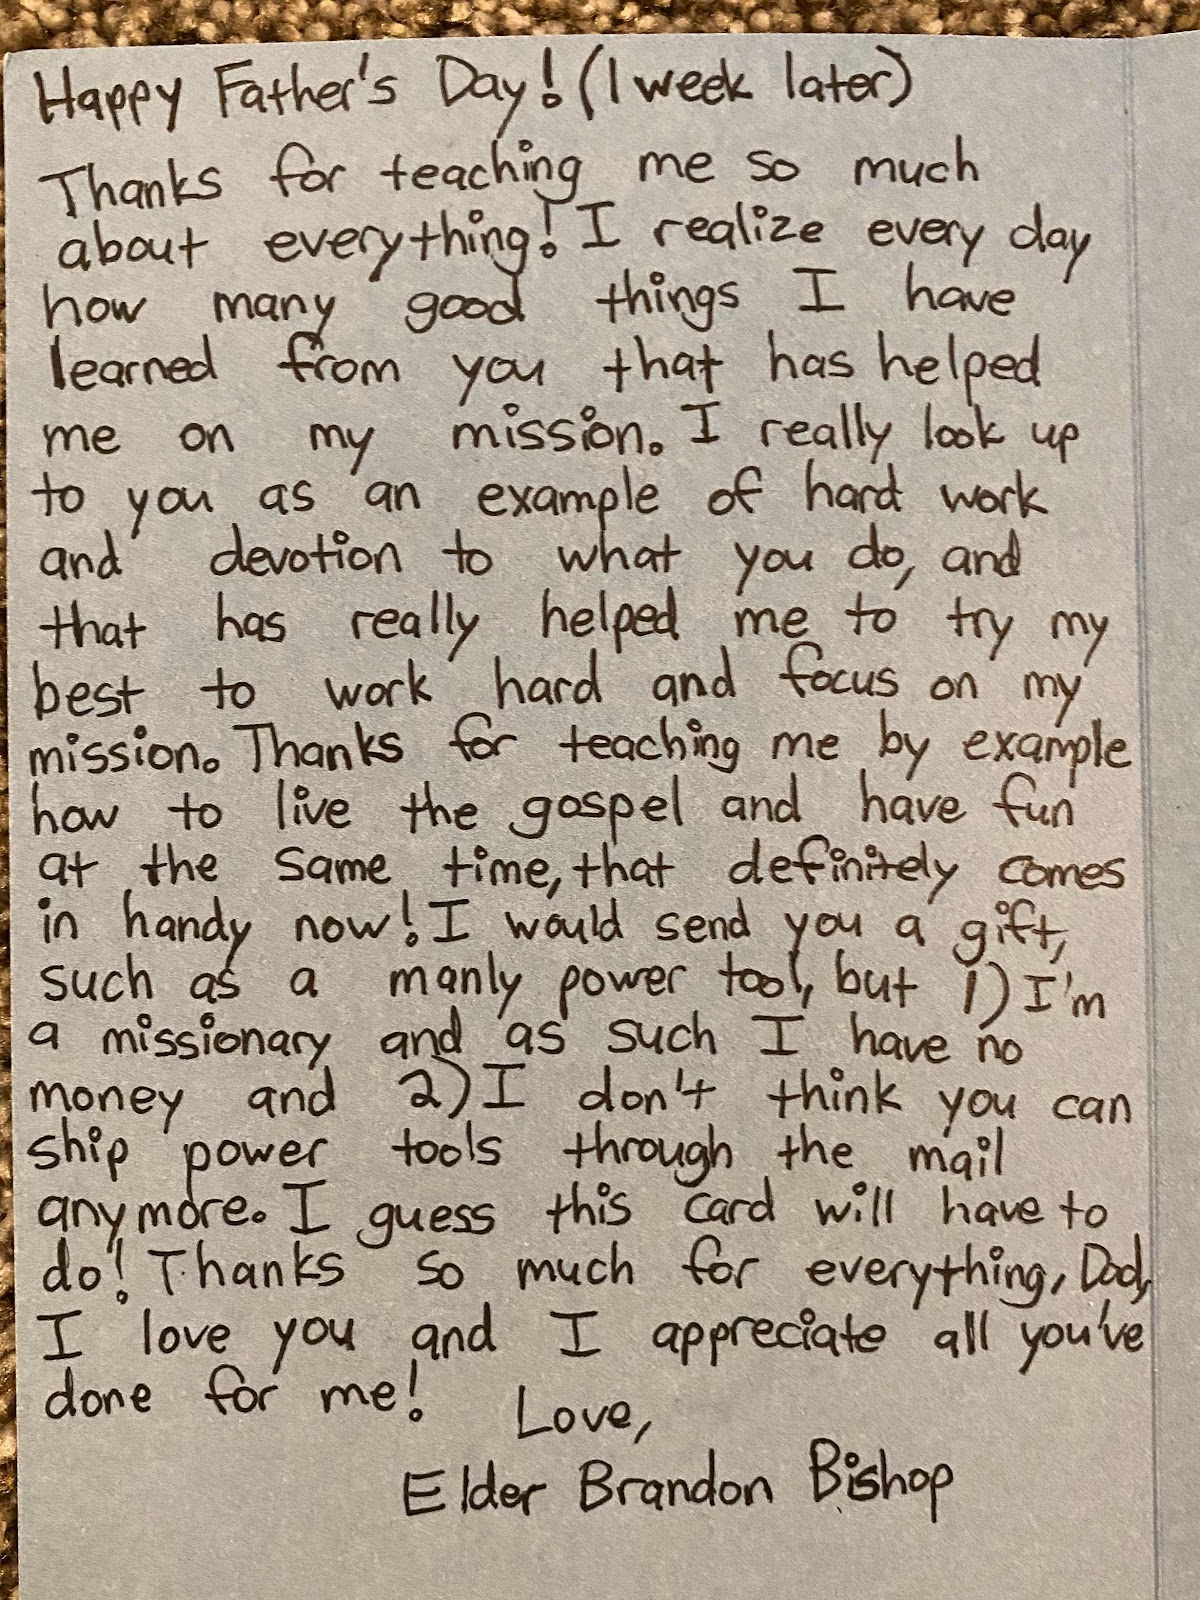 Happy Father's Day! (1 week later)
Thanks for teaching me so much
about everything! I realize every day
how many good things I have
learned from you that has helped
me on my mission. I really look up
to you as an example of hard work
and devotion to what you do, and
that has really helped me to try my
best to work hard and focus on my
mission. Thanks for teaching me by example
how to live the gospel and have fun
at the same time, that definitely comes
in handy now! I would send you a gift,
such as a manly power tool, but 1) I'm
a missionary and as such I have no
money and 2) I don't think you can
ship power tools through the mail
anymore. I guess this card will have to
do! Thanks so much for everything, Dad,
I love you and I appreciate all you've
done for me!
Love,
Elder Brandon Bishop